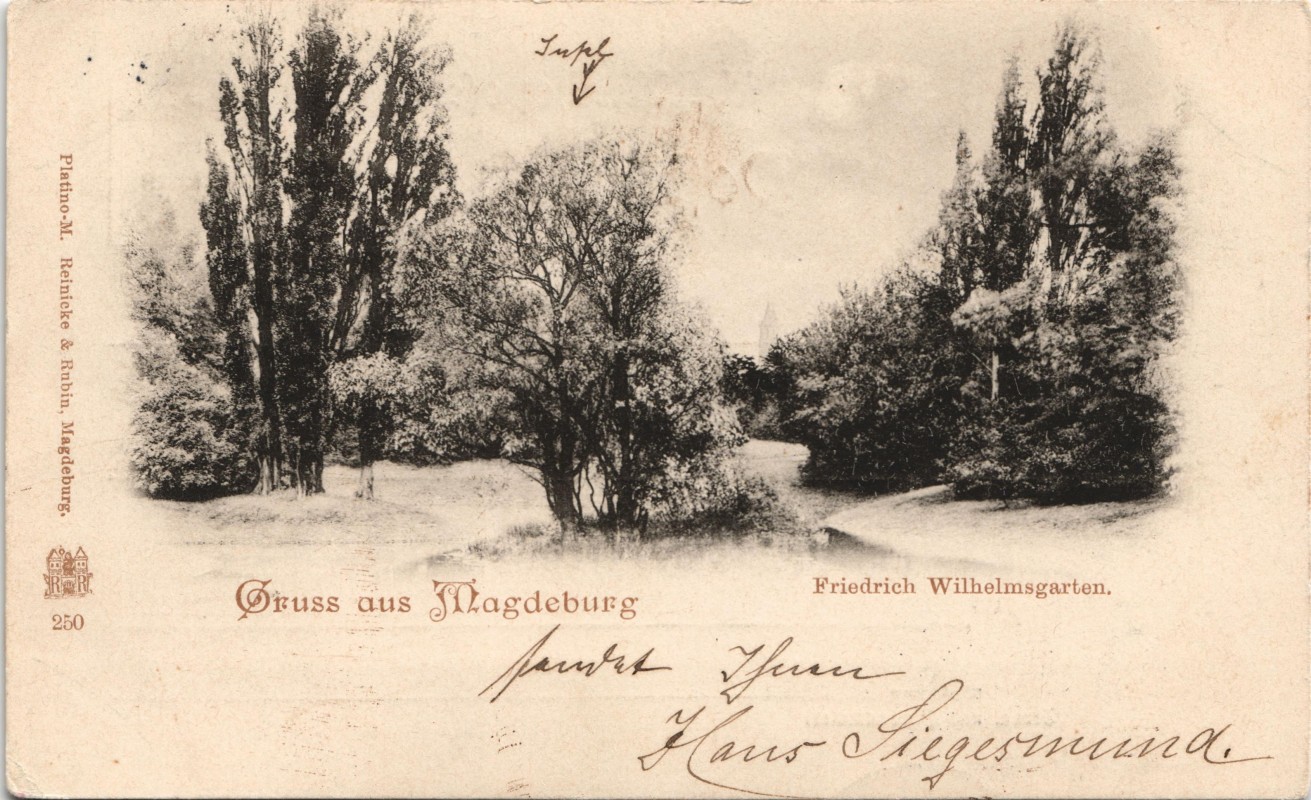 Insel
Platino-M. Reinicke & Rubin, Magdeburg.
R R
250
Gruss aus Magdeburg
Friedrich Wilhelmsgarten.
sendet Ihnen
Hans Siegesmund.